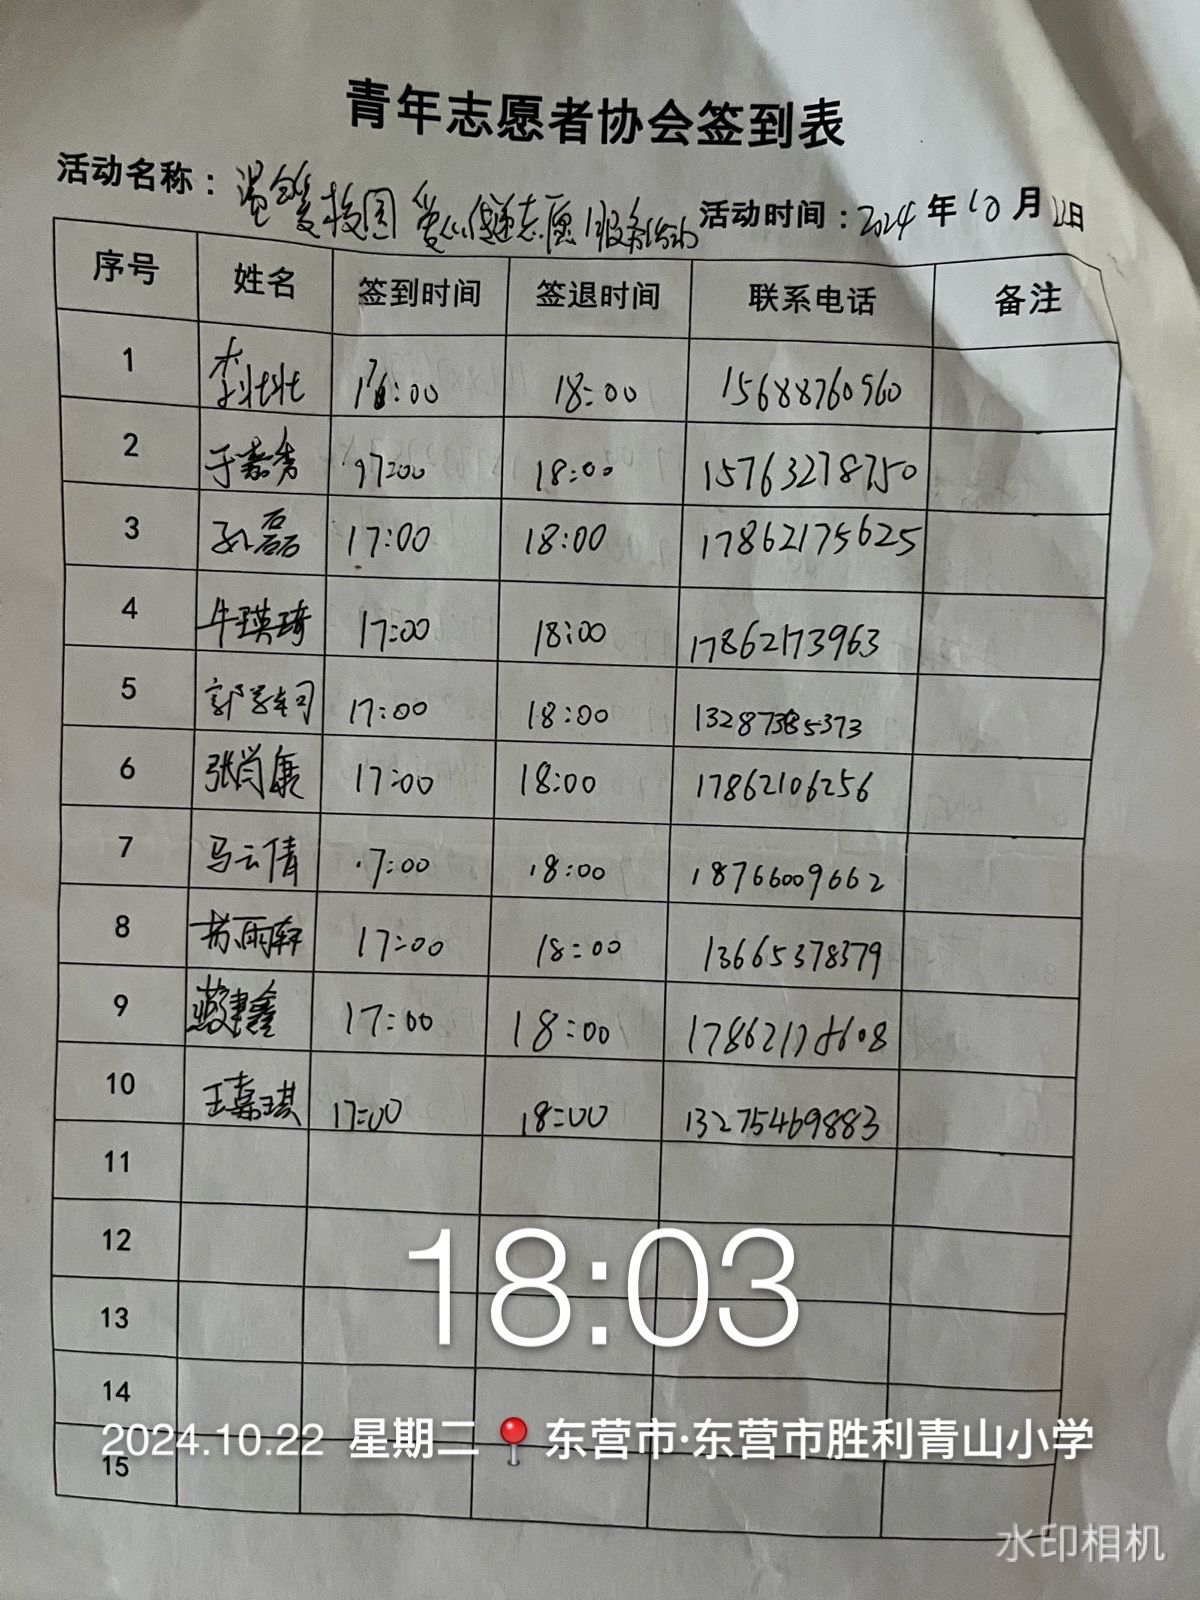 青年志愿者协会签到表
活动名称：温馨校园 爱心传递志愿服务活动 活动时间：2024年10月22日
序号 姓名 签到时间 签退时间 联系电话 备注
1 李壮壮 17:00 18:00 15688760960
2 于嘉秀 17:00 18:00 15763278750
3 孙磊 17:00 18:00 17862175625
4 牛瑛琦 17:00 18:00 17862173963
5 郭 17:00 18:00 13287385373
6 张尚康 17:00 18:00 17862106256
7 马云倩 17:00 18:00 18766009662
8 苏雨轩 17:00 18:00 13665378379
9 建鑫 17:00 18:00
10 王嘉琪 17:00 18:00 13275469883
11
12
18:03
13
14
2024.10.22 星期二 东营市·东营市胜利青山小学
15
水印相机